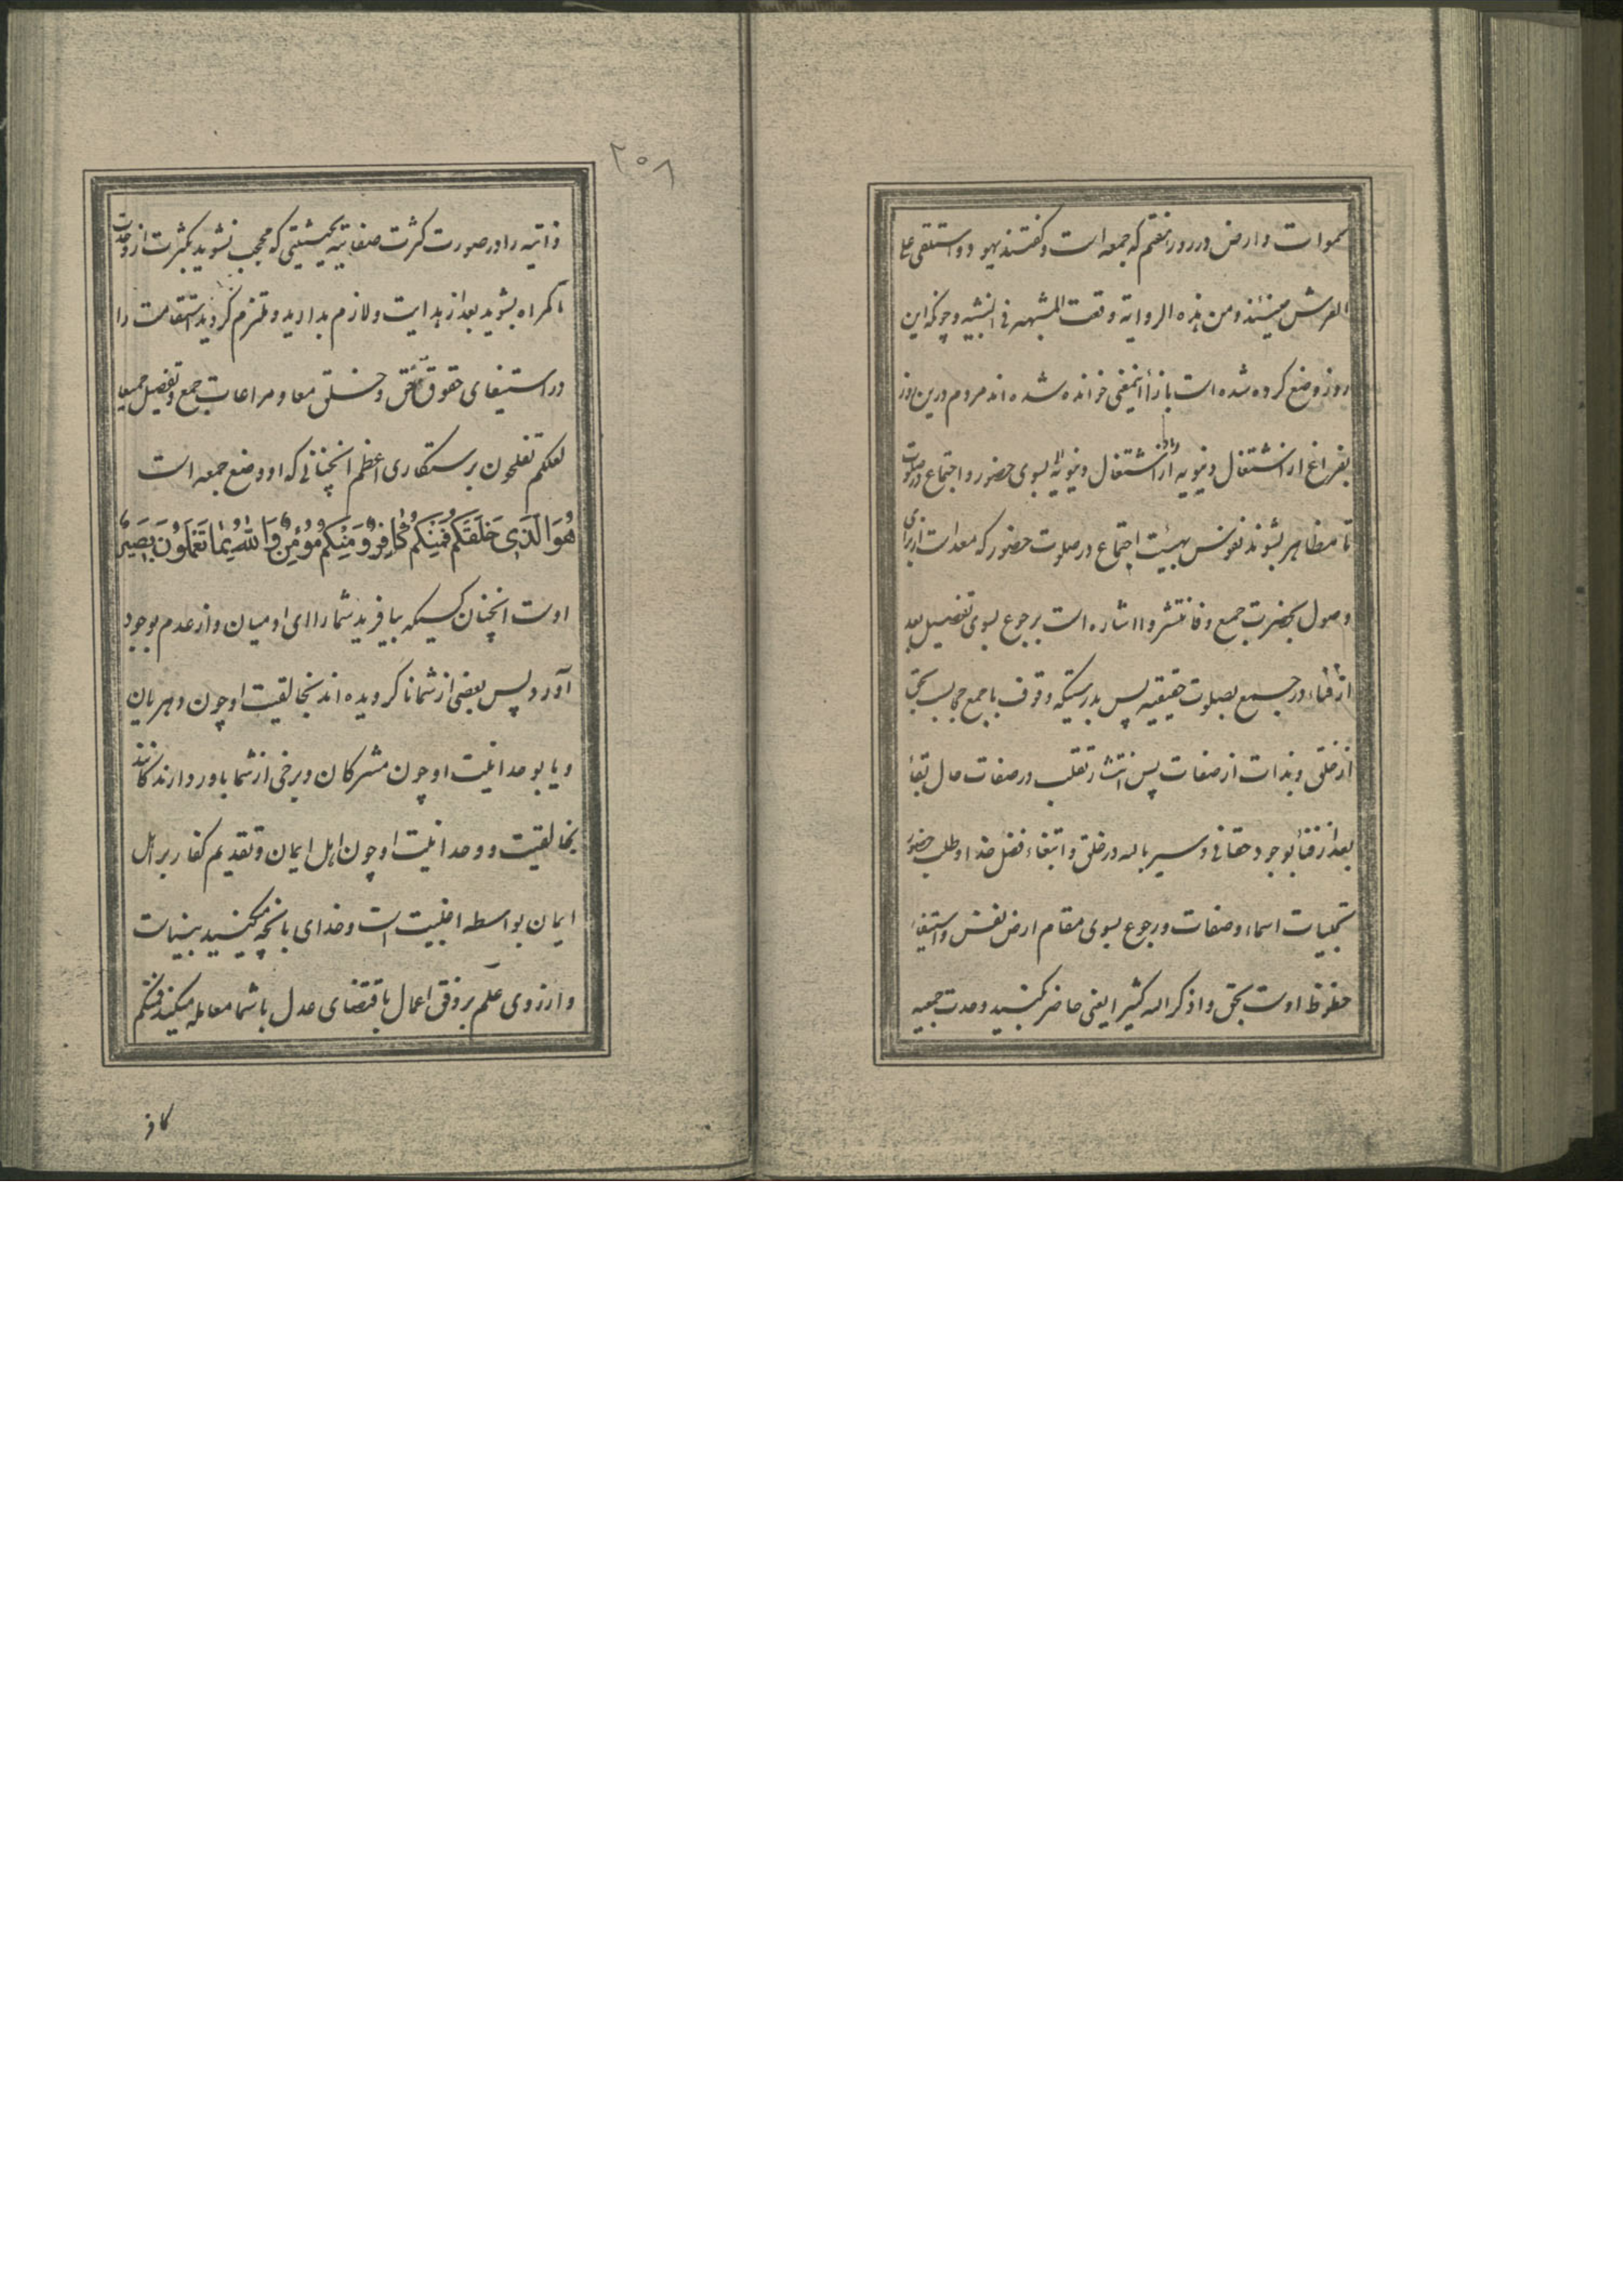 سموات و ارض در روز هفتم که جمعه است و گفتند یهود و استلقی علی
العرش حینئذ و من هذه الروایة وقعت المشبهه فی التشبیه و چونکه این
روز وضع کرده شده است بازاء اینمعنی خوانده شده اند مردم درین روز
بفراغ از اشتغال دنیویه از اشتغال دنیویه بسوی حضور و اجتماع در صلوت
تا مظاهر بشوند نفوس بهیئت اجتماع در صلوت حضور که معدات از برای
وصول بحضرت جمع و فانتشروا اشاره است برجوع بسوی تفصیل بعد
از فناء در جمیع بصلوت حقیقیه پس بدرستیکه وقوف با جمع حجابست بحق
از خلق و بذات از صفات پس انتشار تقلب در صفات حال بقا
بعد از فنا بوجود حقانی و سیر بالله در خلق و ابتغاء فضل خدا و طلب حضور
تجلیات اسماء و صفات و رجوع بسوی مقام ارض نفس و استیفاء
حظوظ اوست بحق و اذکر الله کثیرا یعنی حاضر کنید وحدت جمعیه
۲۵۸
ذاتیه را در صورت کثرت صفاتیه بحیثیتی که محجب نشوید بکثرت از وحدت
تا گمراه بشوید بعد از هدایت و لازم بدارید و ملتزم گردید استقامت را
در استیفای حقوق حق و خلق معا و مراعات جمع و تفصیل جمیعا
لعلکم تفلحون برستگاری اعظم انچنانی که او وضع جمعه است
هُوَ الَّذِی خَلَقَکُم فَمِنکُم کٰافِرٌ وَمِنکُم مُؤمِنٌ وَاللّٰهُ بِمٰا تَعمَلُونَ بَصِیرٌ
اوست انچنان کسیکه بیافرید شما را ای ادمیان و از عدم بوجود
آورد پس بعضی از شما نا گرویده اند بخالقیت او چون دهریان
و یا بوحدانیت او چون مشرکان و برخی از شما باور دارند کانند
بخالقیت و وحدانیت او چون اهل ایمان و تقدیم کفار بر اهل
ایمان بواسطه اغلبیت است و خدای بانچه میکنید بیناست
و از روی علم بر وفق اعمال باقتضای عدل با شما معامله میکند فمنکم
کافر